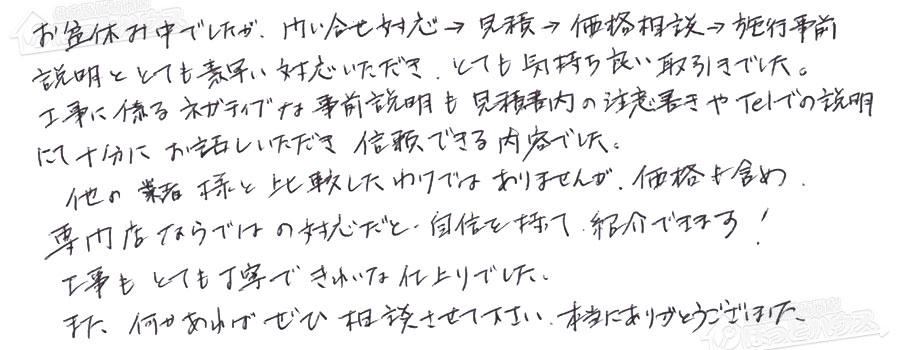 お盆休み中でしたが、問い合せ対応→見積→価格相談→施行事前
説明ととても素早い対応いただき、とても気持ち良い取引きでした。
工事に係るネガティブな事前説明も見積書内の注意書きやTelでの説明
にて十分にお話しいただき信頼できる内容でした。
他の業者様と比較したわけではありませんが、価格も含め、
専門店ならではの対応だと、自信を持って紹介できます！
工事もとても丁寧できれいな仕上りでした。
また、何かあればぜひ相談させて下さい。本当にありがとうございました。